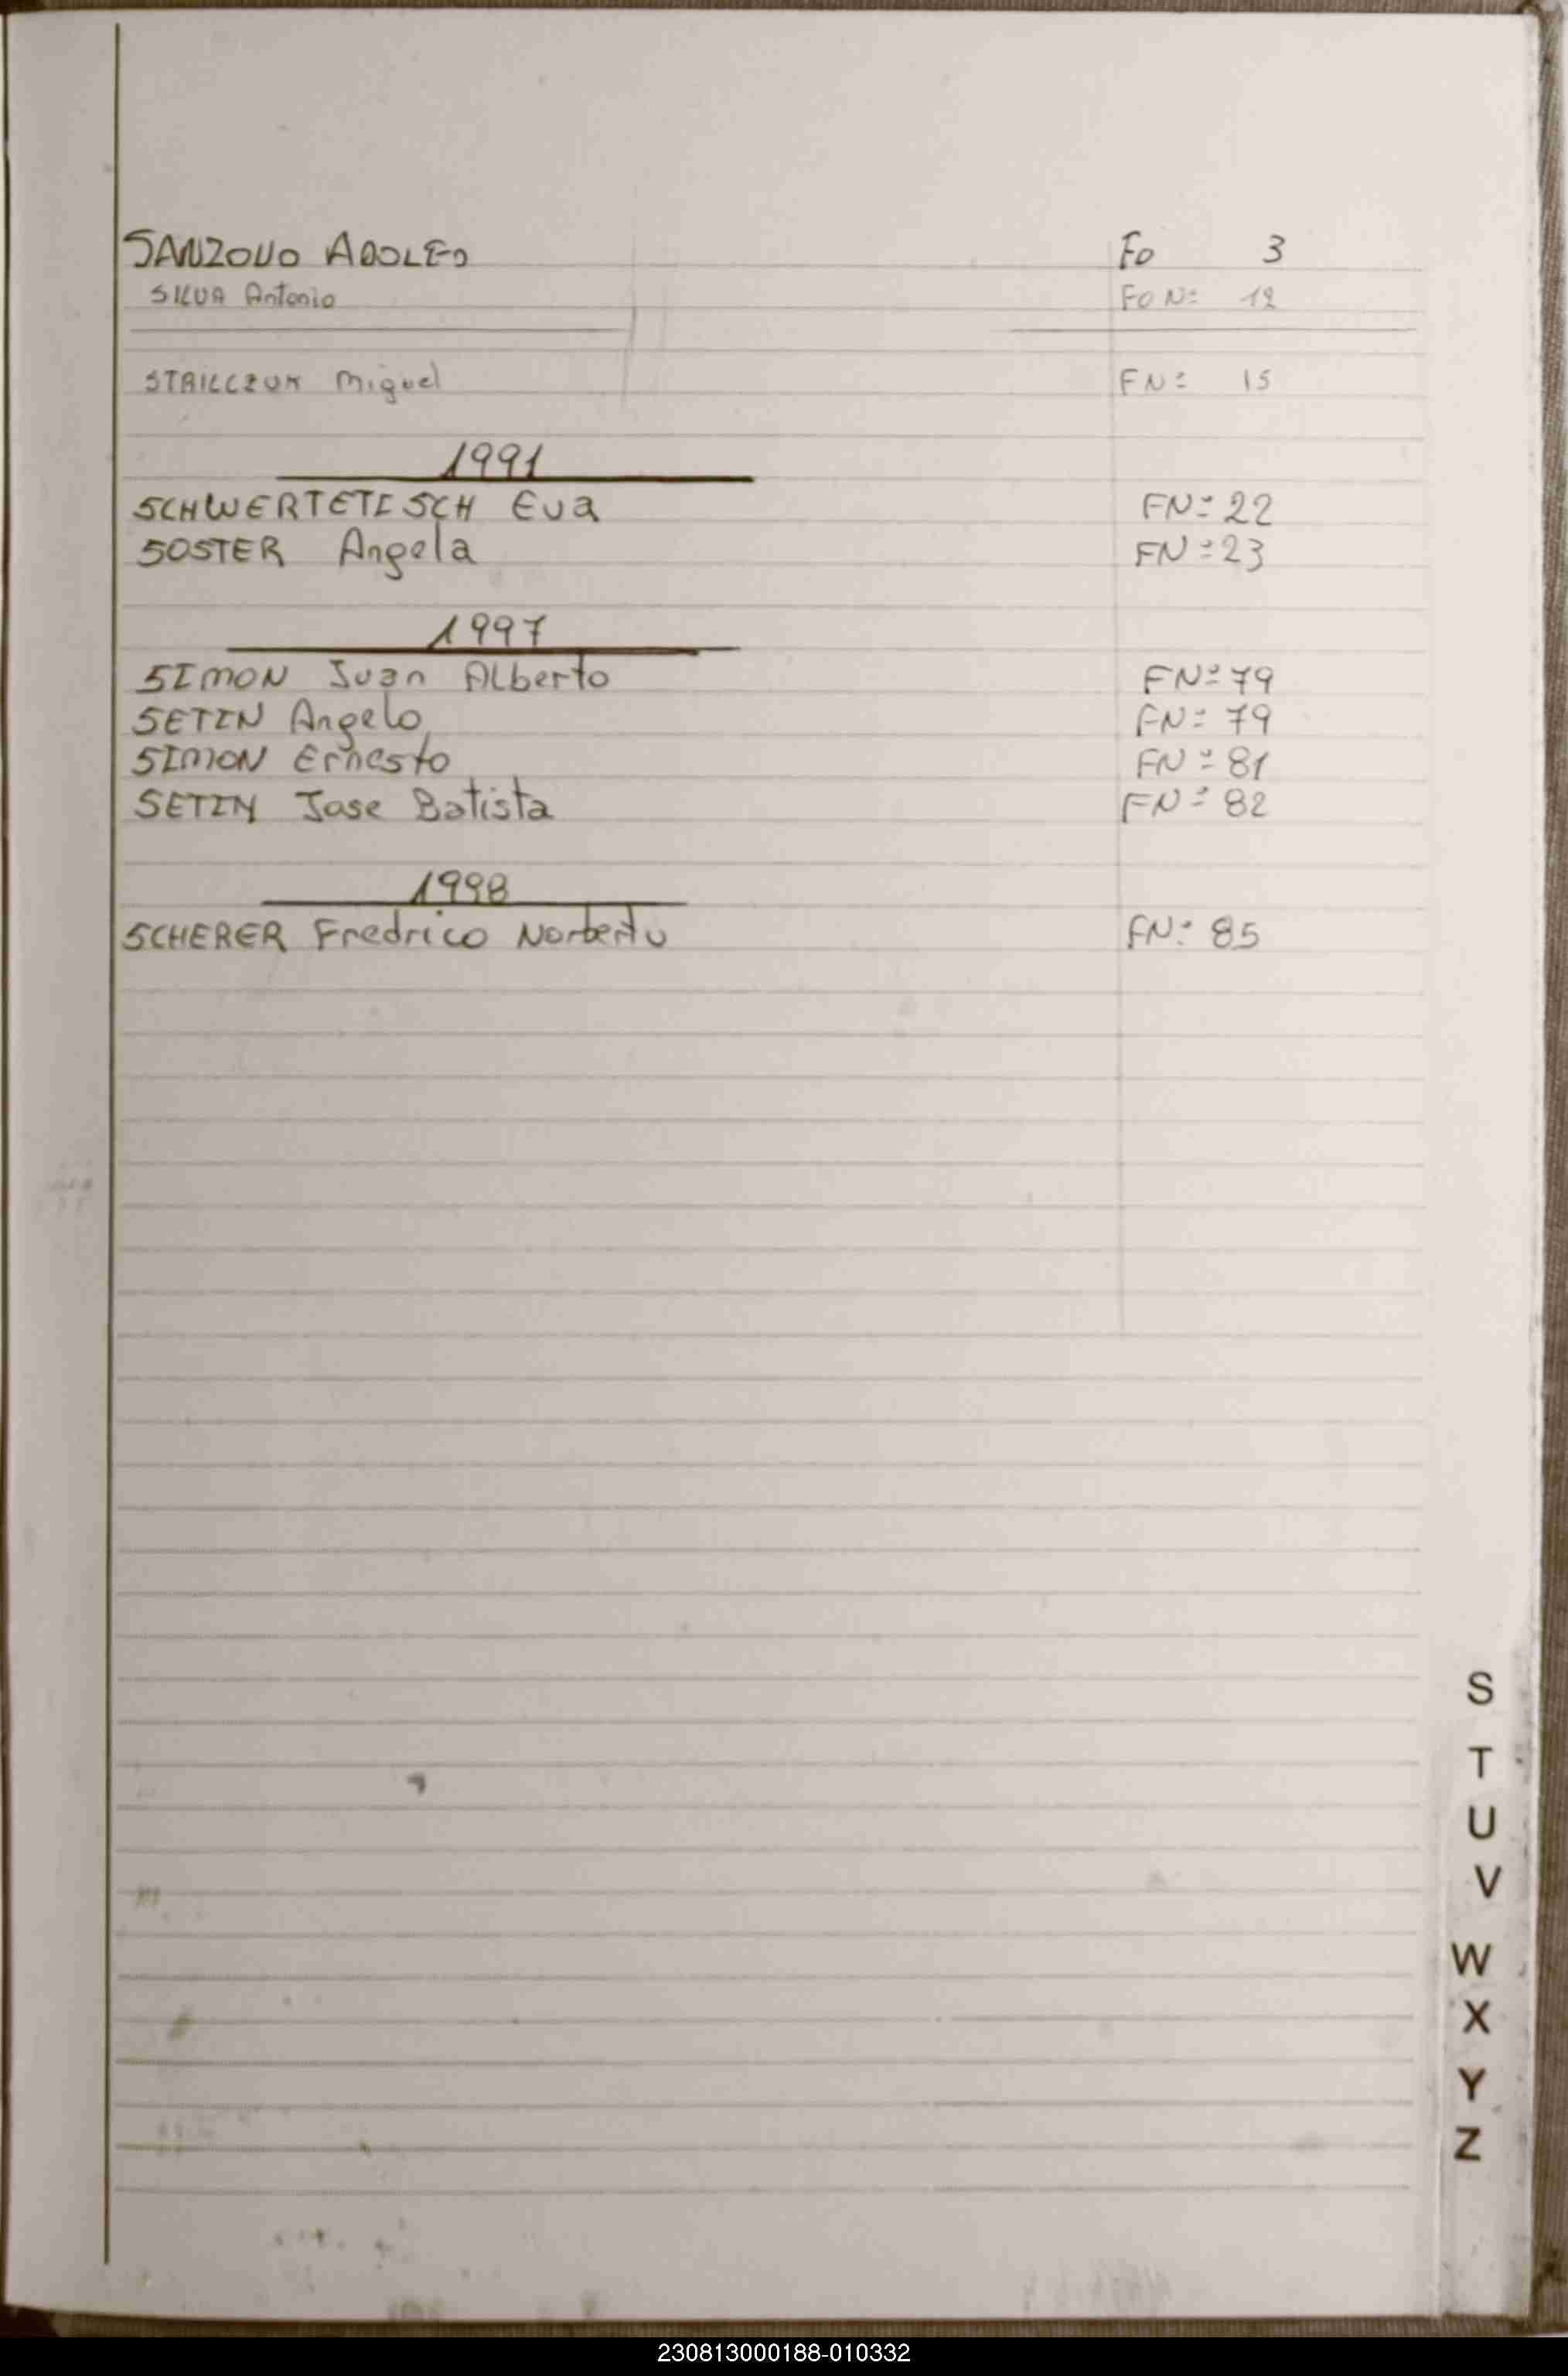 SANZOVO ADOLFO Fo 3
SILVA Antonio FO Nº 12
Miguel FNº 15
1991
SCHWERTETISCH Eva FNº 22
SOSTER Angela FNº 23
1997
SIMON Juan Alberto FNº 79
SETIN Angelo FNº 79
SIMON Ernesto FNº 81
SETIN Jose Batista FNº 82
1998
SCHERER Fredrico Norberto FNº 85
S
T
U
V
W
X
Y
Z
230813000188-010332